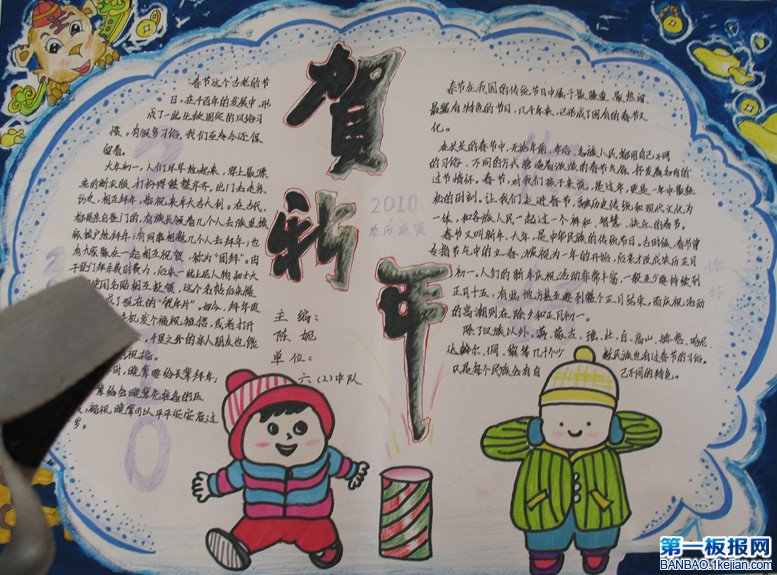 春节这个古老的节
日，在千百年的发展中，形
成了一些比较固定的风俗习
惯，有很多习俗，我们至今还保
留着。
大年初一，人们早早起来，穿上最漂
亮的新衣服，打扮得整整齐齐，出门去走亲
访友，相互拜年，恭祝来年大吉大利。在古代，
都是亲自登门的，有族长领着几个人去
拜年；有同事相邀几个人去拜年；也
有大家聚在一起相互祝贺，称为“团拜”。由
现在的“贺年片”。如今，拜年
发个福祝短信，或者打开
千里之外的亲人朋友也能
祝福。
晚辈要给长辈拜年；
祝福，晚辈可以平平安安度过
岁。
贺
新
年
2010
主编：
陈妮
单位：
六（2）中队
春节在我国的传统节日中属于最隆重、最热闹
最富有特色的节日，几千年来，已形成了固有的春节文
化。
在长长的春节中，无论年前、年后，各族人民都用自己不同
的习俗、不同的方式营造着浓浓的春节气氛，抒发着各自的
过节情怀。春节，对我们孩子来说，是过年，更是一年中最轻
松的时刻。让我们走进春节，融历史传统和现代文化为
一体，和各族人民一起过一个祥和、智慧、快乐的春节。
春节又叫新年、大年，是中华民族的传统节日。古时候，春节曾
专指节气中的立春，被视为一年的开始，后来才改成农历正月
初一。人们的新年庆祝活动非常丰富，一般至少要持续到
正月十五，有些地方甚至要到整个正月结束，而庆祝活动
的高潮则在除夕和正月初一。
除了汉族以外，满、蒙古、瑶、壮、白、高山、赫哲、哈尼、
达斡尔、侗、黎等几十个少数民族也有过春节的习俗，
只是每个民族会有自己不同的特色。
你好
2010
第一板报网
BANBAO.1kejian.com